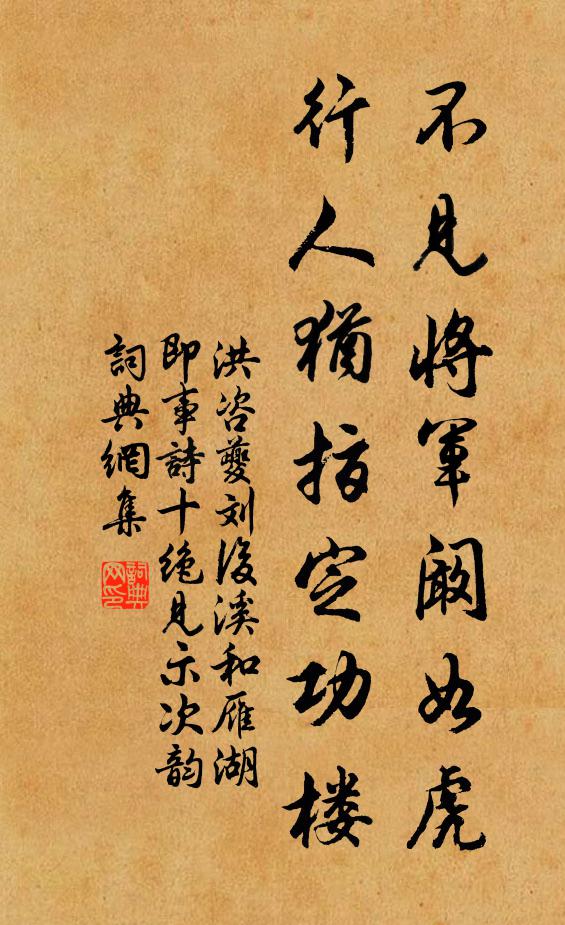 不見將軍闞如虎
行人猶指定功楼
洪咨夔刘後溪和雁湖
即事詩十絶見示次韵
詞典網集
詞典网印